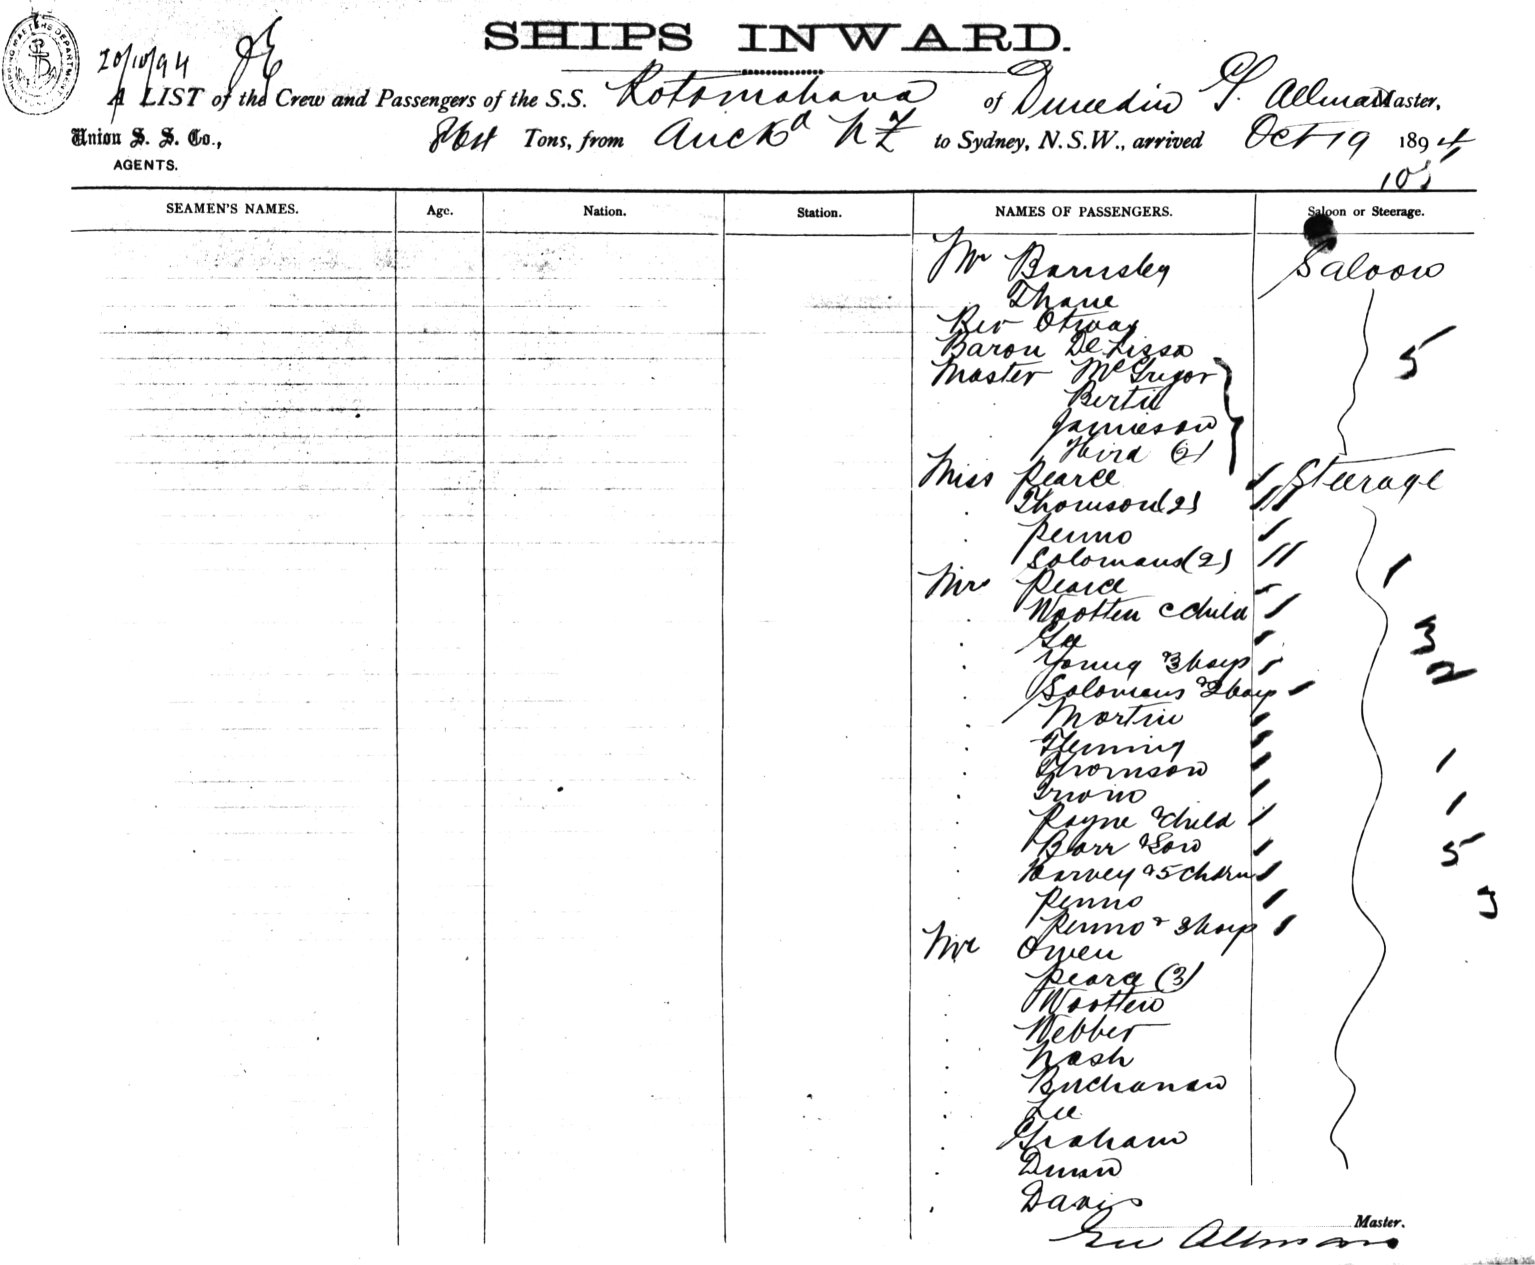 SHIPS INWARD.
20/10/94
A LIST of the Crew and Passengers of the S.S. Rotomahana of Dunedin G. Allman Master,
Union S. S. Co., 864 Tons, from Auckd NZ to Sydney, N.S.W., arrived Oct 19 1894
AGENTS.
105
SEAMEN'S NAMES. Age. Nation. Station. NAMES OF PASSENGERS. Saloon or Steerage.
Mr Barnsley Saloon
Thane
Rev Otway
Baron De Lissa 5
Master McGregor
Bertie
Jamieson
Hird (2)
Miss Pearce Steerage
Thomson (2)
Penno
Solomans (2)
Mrs Pearce 1
Wootten & Child
Lee 3
Young & 3 boys 2
Solomans & 2 boys
Martin
Fleming
Thomson 1
Irwin 1
Payne & Child
Barr & Son 5
Harvey & 5 Chdrn
Penno 3
Penno & 3 boys
Mr Owen
Pearce (3)
Wootten
Webber
Nash
Buchanan
Lee
Graham
Dunn
Davis
Master.
Geo Allman